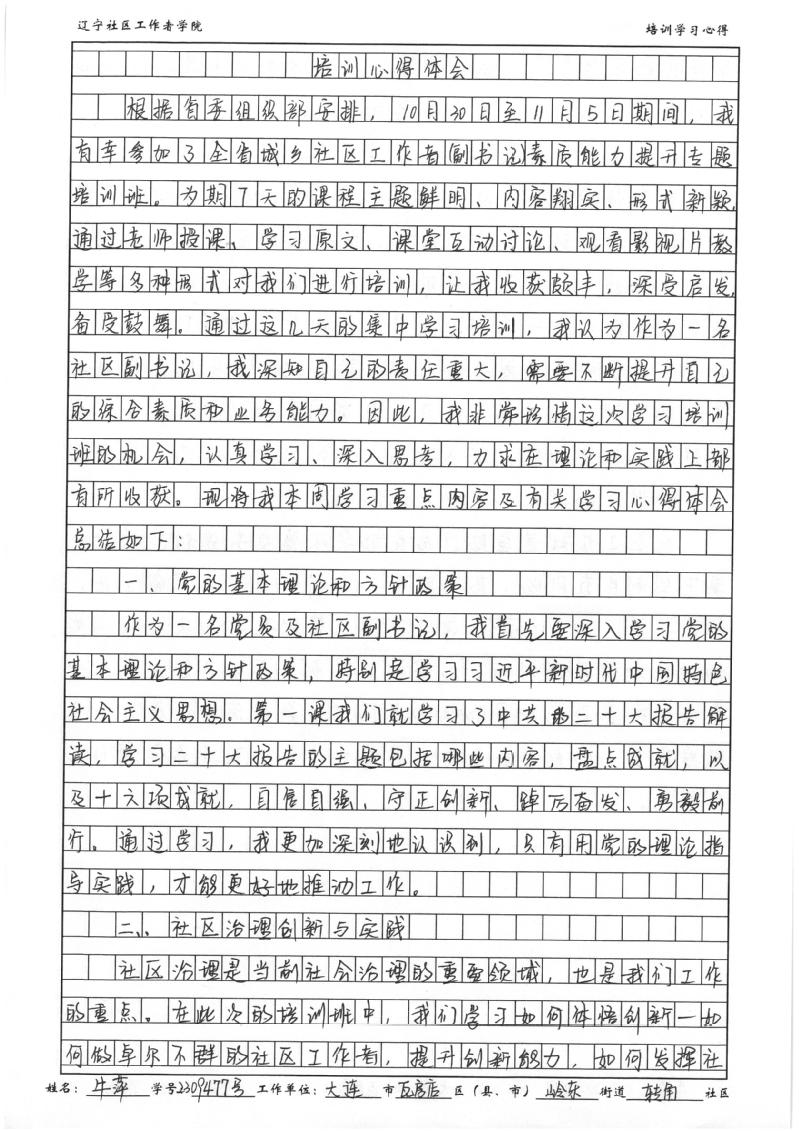 辽宁社区工作者学院 培训学习心得
培训心得体会
根据省委组织部安排，10月30日至11月5日期间，我
有幸参加了全省城乡社区工作者副书记素质能力提升专题
培训班。为期7天的课程主题鲜明、内容翔实、形式新颖，
通过老师授课、学习原文、课堂互动讨论、观看影视片教
学等多种形式对我们进行培训，让我收获颇丰，深受启发，
备受鼓舞。通过这几天的集中学习培训，我认为作为一名
社区副书记，我深知自己的责任重大，需要不断提升自己
的综合素质和业务能力。因此，我非常珍惜这次学习培训
班的机会，认真学习、深入思考，力求在理论和实践上都
有所收获。现将我本周学习重点内容及有关学习心得体会
总结如下：
一、党的基本理论和方针政策
作为一名党员及社区副书记，我首先要深入学习党的
基本理论和方针政策，特别是学习习近平新时代中国特色
社会主义思想。第一课我们就学习了中共的二十大报告解
读，学习二十大报告的主题包括哪些内容，盘点成就，以
及十六项成就，自信自强、守正创新、踔厉奋发、勇毅前
行。通过学习，我更加深刻地认识到，只有用党的理论指
导实践，才能更好地推动工作。
二、社区治理创新与实践
社区治理是当前社会治理的重要领域，也是我们工作
的重点。在此次的培训班中，我们学习如何体悟创新一如
何做卓尔不群的社区工作者，提升创新能力，如何发挥社
姓名：牛萍 学号2309477号 工作单位：大连 市 瓦房店 区（县、市） 岭东 街道 转角 社区